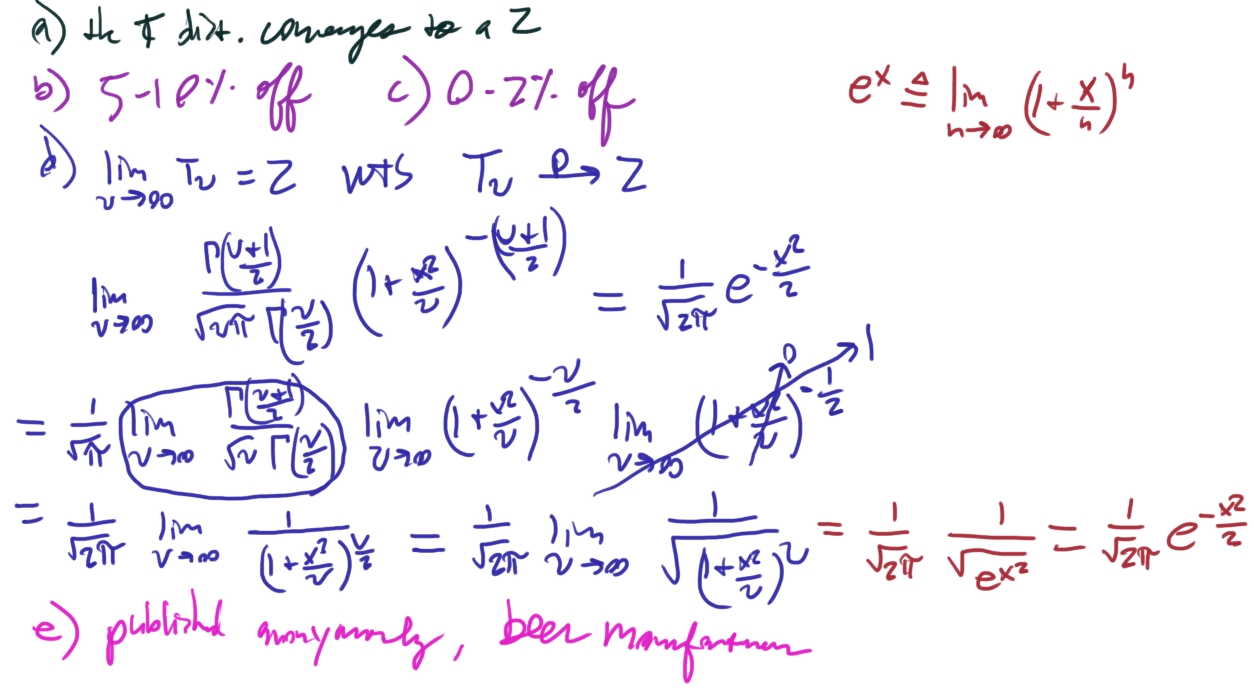 a) the T dist. converges to a Z
b) 5-10% off c) 0-2% off
e^x ≜ lim_{n→∞} (1 + x/n)^n
d) lim_{ν→∞} T_ν = Z WTS T_ν →^D Z
lim_{ν→∞} Γ((ν+1)/2) / (√(νπ) Γ(ν/2)) (1 + x²/ν)^{-((ν+1)/2)} = 1/√(2π) e^{-x²/2}
= 1/√π lim_{ν→∞} Γ((ν+1)/2) / (√ν Γ(ν/2)) lim_{ν→∞} (1 + x²/ν)^{-ν/2} lim_{ν→∞} (1 + x²/ν)^{-1/2} → 0 → 1
= 1/√(2π) lim_{ν→∞} 1/(1 + x²/ν)^{ν/2} = 1/√(2π) lim_{ν→∞} 1/√((1 + x²/ν)^ν) = 1/√(2π) 1/√(e^{x²}) = 1/√(2π) e^{-x²/2}
e) published anonymously, beer manufacturer